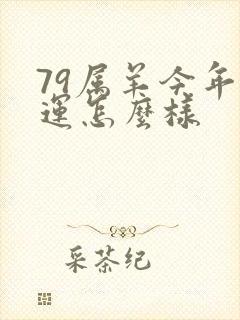 79属羊今年
運怎麼樣
采茶纪